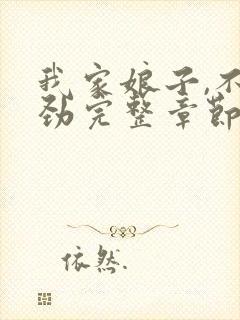 我家娘子,不
劲完整章节
依然.